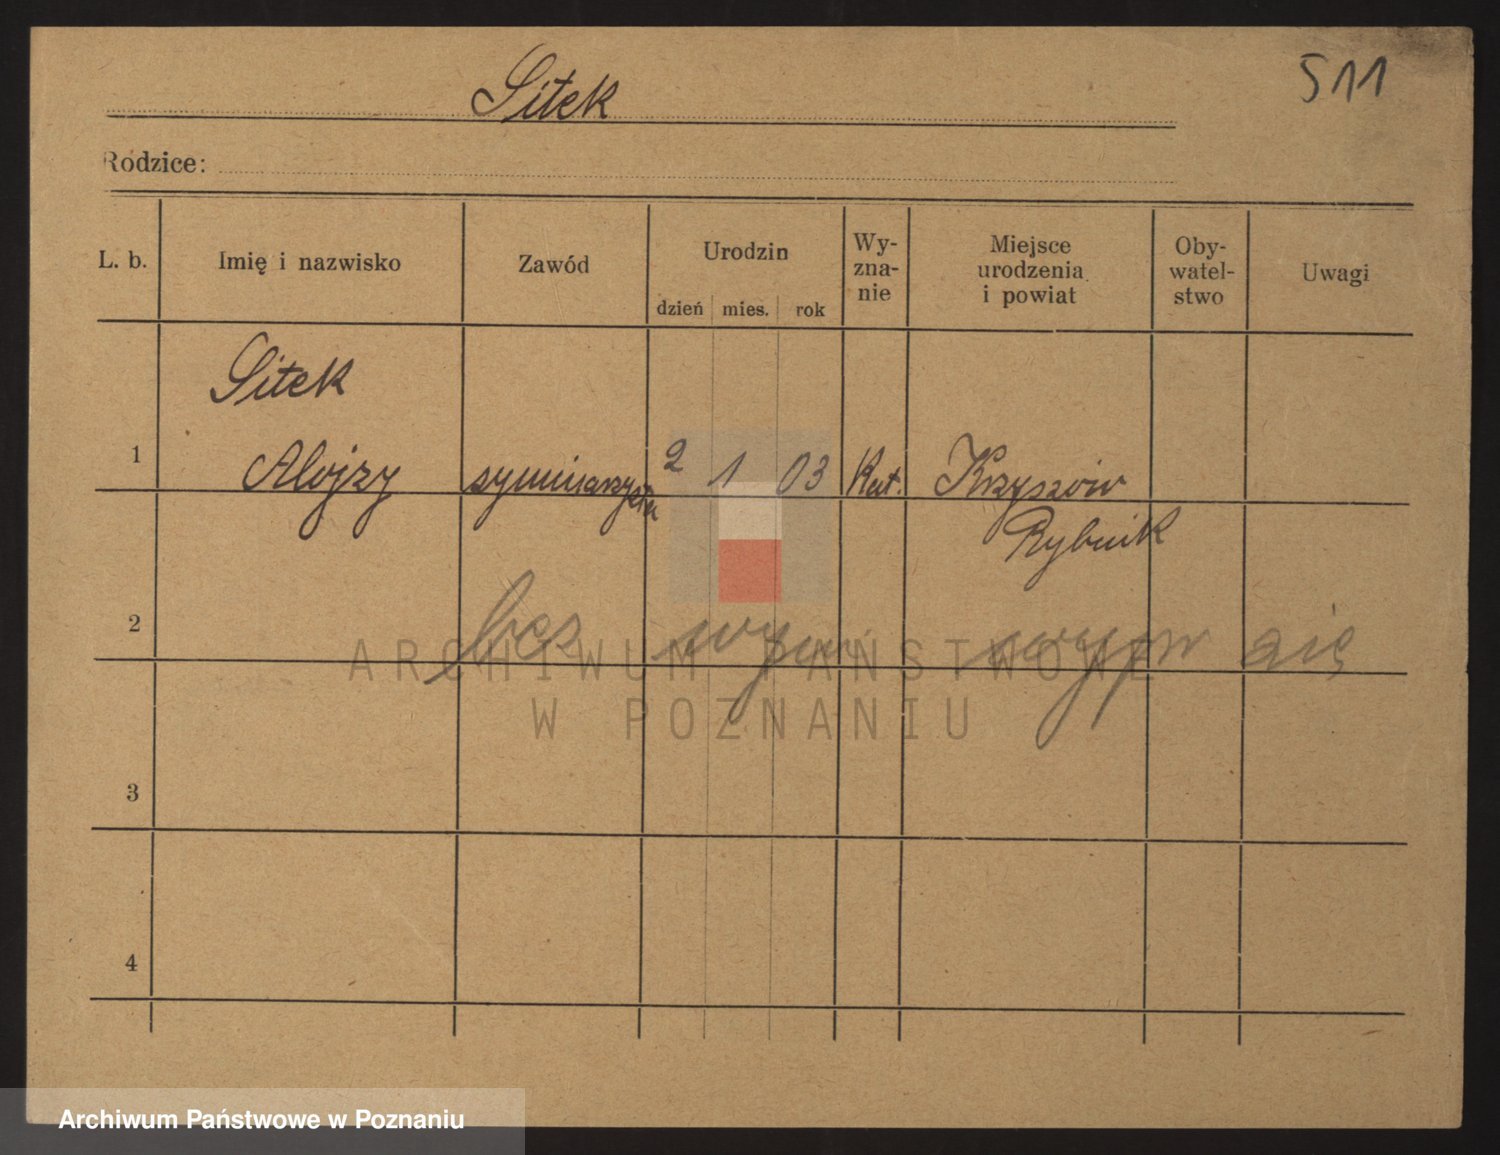 511
Sitek
Rodzice:
L. b. Imię i nazwisko Zawód Urodzin dzień mies. rok Wy-zna-nie Miejsce urodzenia i powiat Oby-watel-stwo Uwagi
Sitek
1 Alojzy 2 1 03 Kat. Krzyszów
Rybnik
2 bez się
ARCHIWUM PAŃSTWOWE
W POZNANIU
3
4
Archiwum Państwowe w Poznaniu